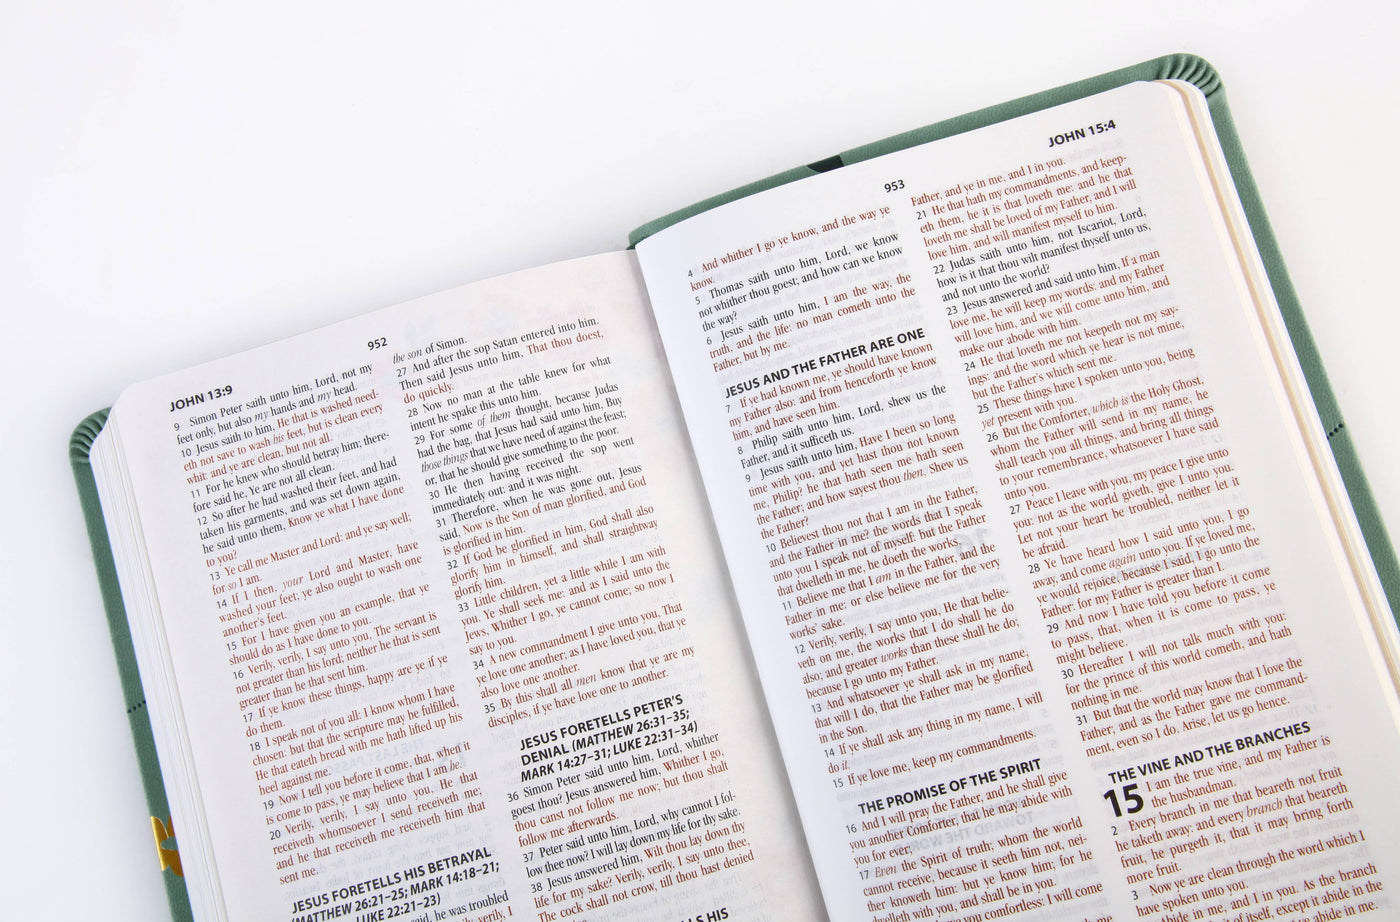 952
JOHN 13:9
9 Simon Peter saith unto him, Lord, not my
feet only, but also my hands and my head.
10 Jesus saith to him, He that is washed need-
eth not save to wash his feet, but is clean every
whit: and ye are clean, but not all.
11 For he knew who should betray him; there-
fore said he, Ye are not all clean.
12 So after he had washed their feet, and had
taken his garments, and was set down again,
he said unto them, Know ye what I have done
to you?
13 Ye call me Master and Lord: and ye say well;
for so I am.
14 If I then, your Lord and Master, have
washed your feet; ye also ought to wash one
another's feet.
15 For I have given you an example, that ye
should do as I have done to you.
16 Verily, verily, I say unto you, The servant is
not greater than his lord; neither he that is sent
greater than he that sent him.
17 If ye know these things, happy are ye if ye
do them.
18 I speak not of you all: I know whom I have
chosen: but that the scripture may be fulfilled,
He that eateth bread with me hath lifted up his
heel against me.
19 Now I tell you before it come, that, when it
is come to pass, ye may believe that I am he.
20 Verily, verily, I say unto you, He that
receiveth whomsoever I send receiveth me;
and he that receiveth me receiveth him that
sent me.
JESUS FORETELLS HIS BETRAYAL
(MATTHEW 26:21–25; MARK 14:18–21;
LUKE 22:21–23)
said, he was troubled
verily, I
the son of Simon.
27 And after the sop Satan entered into him.
Then said Jesus unto him, That thou doest,
do quickly.
28 Now no man at the table knew for what
intent he spake this unto him.
29 For some of them thought, because Judas
had the bag, that Jesus had said unto him, Buy
those things that we have need of against the feast;
or, that he should give something to the poor.
30 He then having received the sop went
immediately out: and it was night.
31 Therefore, when he was gone out, Jesus
said, Now is the Son of man glorified, and God
is glorified in him.
32 If God be glorified in him, God shall also
glorify him in himself, and shall straightway
glorify him.
33 Little children, yet a little while I am with
you. Ye shall seek me: and as I said unto the
Jews, Whither I go, ye cannot come; so now I
say to you.
34 A new commandment I give unto you, That
ye love one another; as I have loved you, that ye
also love one another.
35 By this shall all men know that ye are my
disciples, if ye have love one to another.
JESUS FORETELLS PETER'S
DENIAL (MATTHEW 26:31–35;
MARK 14:27–31; LUKE 22:31–34)
36 Simon Peter said unto him, Lord, whither
goest thou? Jesus answered him, Whither I go,
thou canst not follow me now; but thou shalt
follow me afterwards.
37 Peter said unto him, Lord, why cannot I fol-
low thee now? I will lay down my life for thy sake.
38 Jesus answered him, Wilt thou lay down thy
life for my sake? Verily, verily, I say unto thee,
The cock shall not crow, till thou hast denied
LLS HIS
953
JOHN 15:4
4 And whither I go ye know, and the way ye
know.
5 Thomas saith unto him, Lord, we know
not whither thou goest; and how can we know
the way?
6 Jesus saith unto him, I am the way, the
truth, and the life: no man cometh unto the
Father, but by me.
JESUS AND THE FATHER ARE ONE
7 If ye had known me, ye should have known
my Father also: and from henceforth ye know
him, and have seen him.
8 Philip saith unto him, Lord, shew us the
Father, and it sufficeth us.
9 Jesus saith unto him, Have I been so long
time with you, and yet hast thou not known
me, Philip? he that hath seen me hath seen
the Father; and how sayest thou then, Shew us
the Father?
10 Believest thou not that I am in the Father,
and the Father in me? the words that I speak
unto you I speak not of myself: but the Father
that dwelleth in me, he doeth the works.
11 Believe me that I am in the Father, and the
Father in me: or else believe me for the very
works' sake.
12 Verily, verily, I say unto you, He that belie-
veth on me, the works that I do shall he do
also; and greater works than these shall he do;
because I go unto my Father.
13 And whatsoever ye shall ask in my name,
that will I do, that the Father may be glorified
in the Son.
14 If ye shall ask any thing in my name, I will
do it.
15 If ye love me, keep my commandments.
THE PROMISE OF THE SPIRIT
16 And I will pray the Father, and he shall give
you another Comforter, that he may abide with
you for ever;
17 Even the Spirit of truth; whom the world
cannot receive, because it seeth him not, nei-
ther knoweth him: but ye know him; for he
dwelleth with you, and shall be in you.
you comfortless: I will come
Father, and ye in me, and I in you.
21 He that hath my commandments, and keep-
eth them, he it is that loveth me: and he that
loveth me shall be loved of my Father, and I will
love him, and will manifest myself to him.
22 Judas saith unto him, not Iscariot, Lord,
how is it that thou wilt manifest thyself unto us,
and not unto the world?
23 Jesus answered and said unto him, If a man
love me, he will keep my words: and my Father
will love him, and we will come unto him, and
make our abode with him.
24 He that loveth me not keepeth not my say-
ings: and the word which ye hear is not mine,
but the Father's which sent me.
25 These things have I spoken unto you, being
yet present with you.
26 But the Comforter, which is the Holy Ghost,
whom the Father will send in my name, he
shall teach you all things, and bring all things
to your remembrance, whatsoever I have said
unto you.
27 Peace I leave with you, my peace I give unto
you: not as the world giveth, give I unto you.
Let not your heart be troubled, neither let it
be afraid.
28 Ye have heard how I said unto you, I go
away, and come again unto you. If ye loved me,
ye would rejoice, because I said, I go unto the
Father: for my Father is greater than I.
29 And now I have told you before it come
to pass, that, when it is come to pass, ye
might believe.
30 Hereafter I will not talk much with you:
for the prince of this world cometh, and hath
nothing in me.
31 But that the world may know that I love the
Father; and as the Father gave me command-
ment, even so I do. Arise, let us go hence.
THE VINE AND THE BRANCHES
15 I am the true vine, and my Father is
the husbandman.
2 Every branch in me that beareth not fruit
he taketh away: and every branch that beareth
fruit, he purgeth it, that it may bring forth
more fruit.
3 Now ye are clean through the word which I
have spoken unto you.
in me, and I in you. As the branch
itself, except it abide in the
in me.